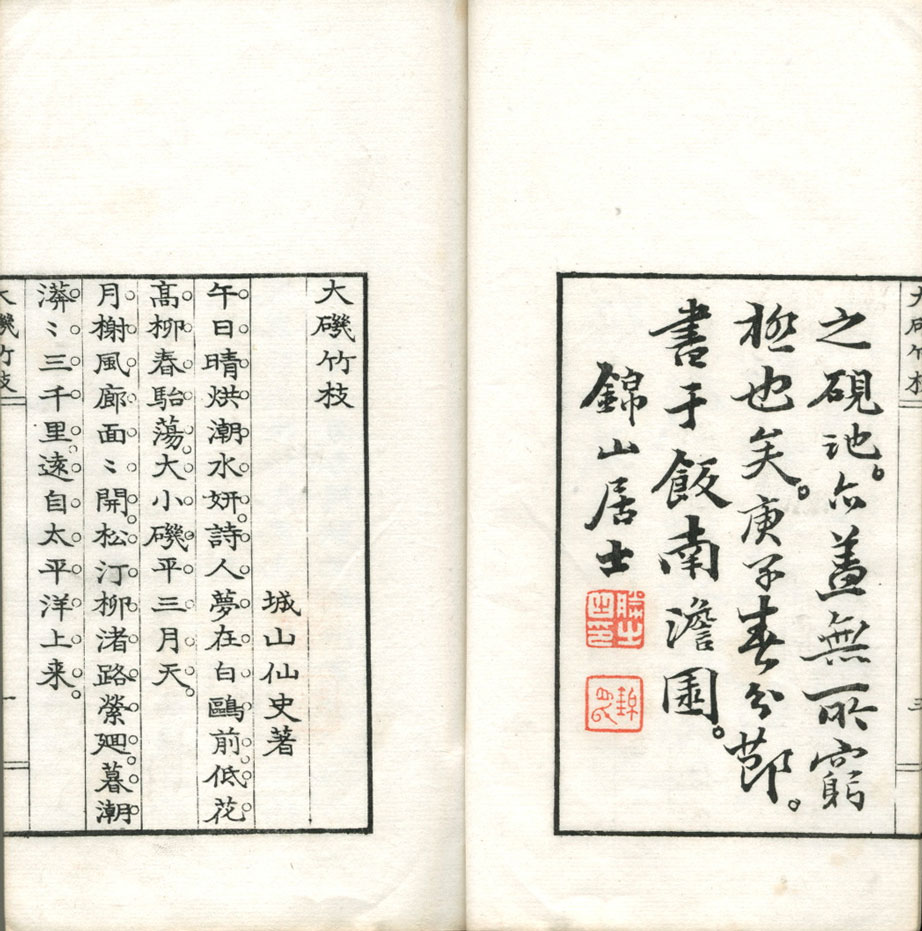 之硯池。亦蓋無所窮
極也矣。庚子春分節。
書于飯南澹園。
錦山居士
大磯竹枝
城山仙史著
午日晴烘潮水妍。詩人夢在白鷗前。低花
高柳春駘蕩。大小磯平三月天。
月榭風廊面〻開。松汀柳渚路縈廻。暮潮
漭〻三千里。遠自太平洋上来。
大磯竹枝
一